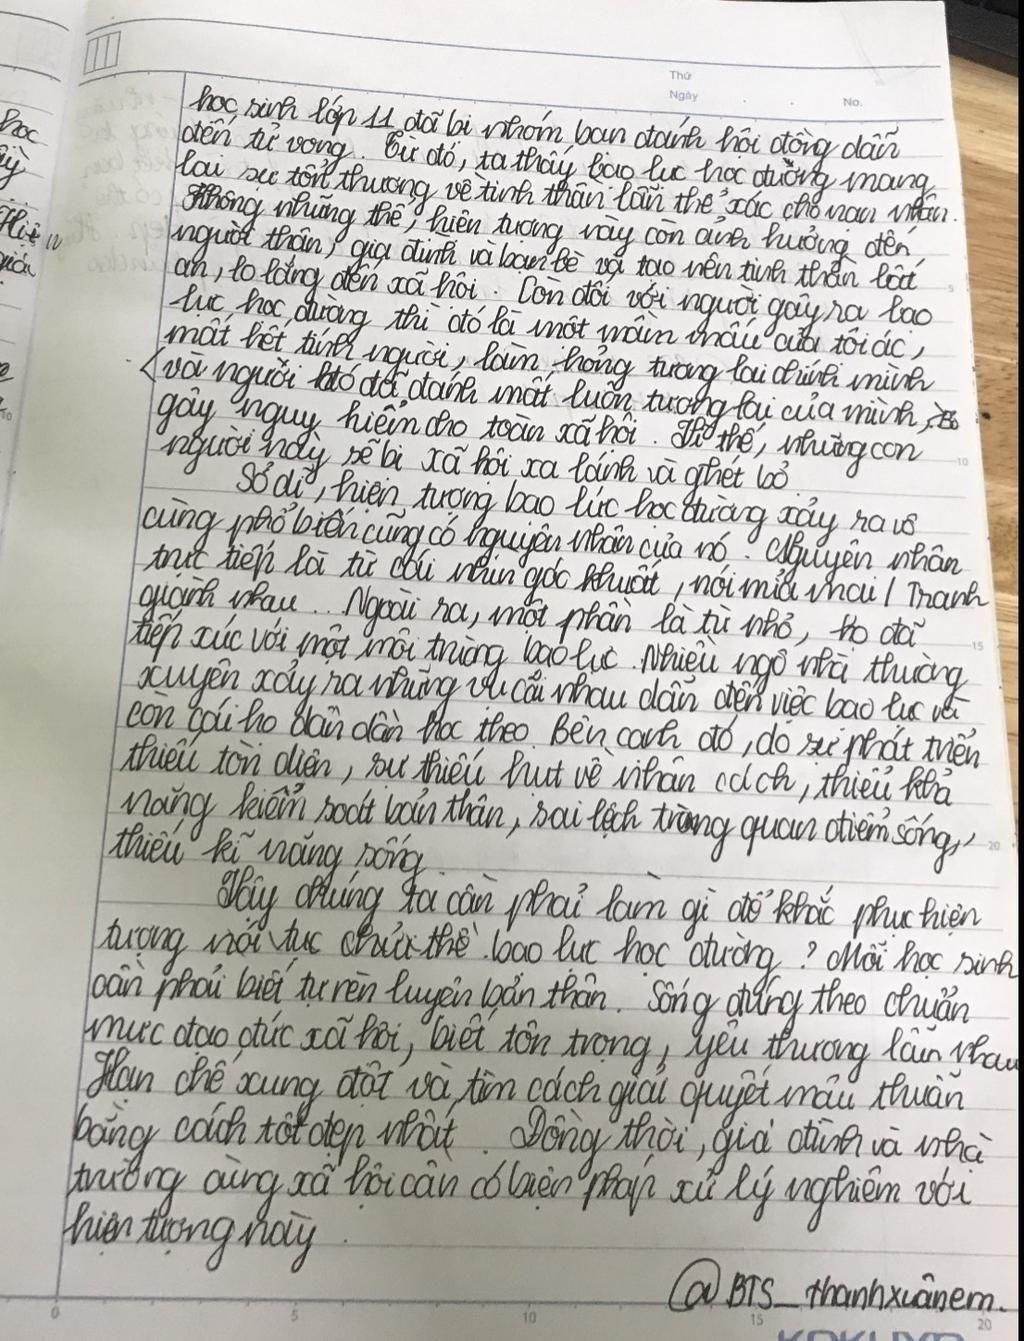 Thứ
Ngày
No.
học sinh lớp 11 đã bị nhóm bạn đánh hội đồng dẫn
đến tử vong. Từ đó, ta thấy bạo lực học đường mang
lại sự tổn thương về tinh thần lẫn thể xác cho nạn nhân.
Không những thế, hiện tượng này còn ảnh hưởng đến
người thân, gia đình và bạn bè và tạo nên tinh thần bất
an, lo lắng đến xã hội. Còn đối với người gây ra bạo
lực học đường thì đó là một mầm mấu của tội ác,
mất hết tính người, làm hỏng tương lai chính mình
và người đó đã đánh mất luôn tương lai của mình,
gây nguy hiểm cho toàn xã hội. Vì thế, những con
người này sẽ bị xã hội xa lánh và ghét bỏ
Sở dĩ, hiện tượng bạo lực học đường xảy ra vô
cùng phổ biến cũng có nguyên nhân của nó. Nguyên nhân
trực tiếp là từ cái nhìn góc khuất, nói mỉa mai / Tranh
giành nhau... Ngoài ra, một phần là từ nhỏ, họ đã
tiếp xúc với một môi trường bạo lực. Nhiều ngôi nhà thường
xuyên xảy ra những vụ cãi nhau dẫn đến việc bạo lực và
con cái họ dần dần học theo. Bên cạnh đó, do sự phát triển
thiếu toàn diện, sự thiếu hụt về nhân cách, thiếu khả
năng kiểm soát bản thân, sai lệch trong quan điểm sống,
thiếu kĩ năng sống.
Vậy chúng ta cần phải làm gì để khắc phục hiện
tượng nói tục chửi thề bạo lực học đường? Mỗi học sinh
cần phải biết tự rèn luyện bản thân. Sống đúng theo chuẩn
mực đạo đức xã hội, biết tôn trọng, yêu thương lẫn nhau
Hạn chế xung đột và tìm cách giải quyết mâu thuẫn
bằng cách tốt đẹp nhất. Đồng thời, gia đình và nhà
trường cùng xã hội cần có biện pháp xử lý nghiêm với
hiện tượng này.
@BTS_thanhxuânem.
0 5 10 15 20